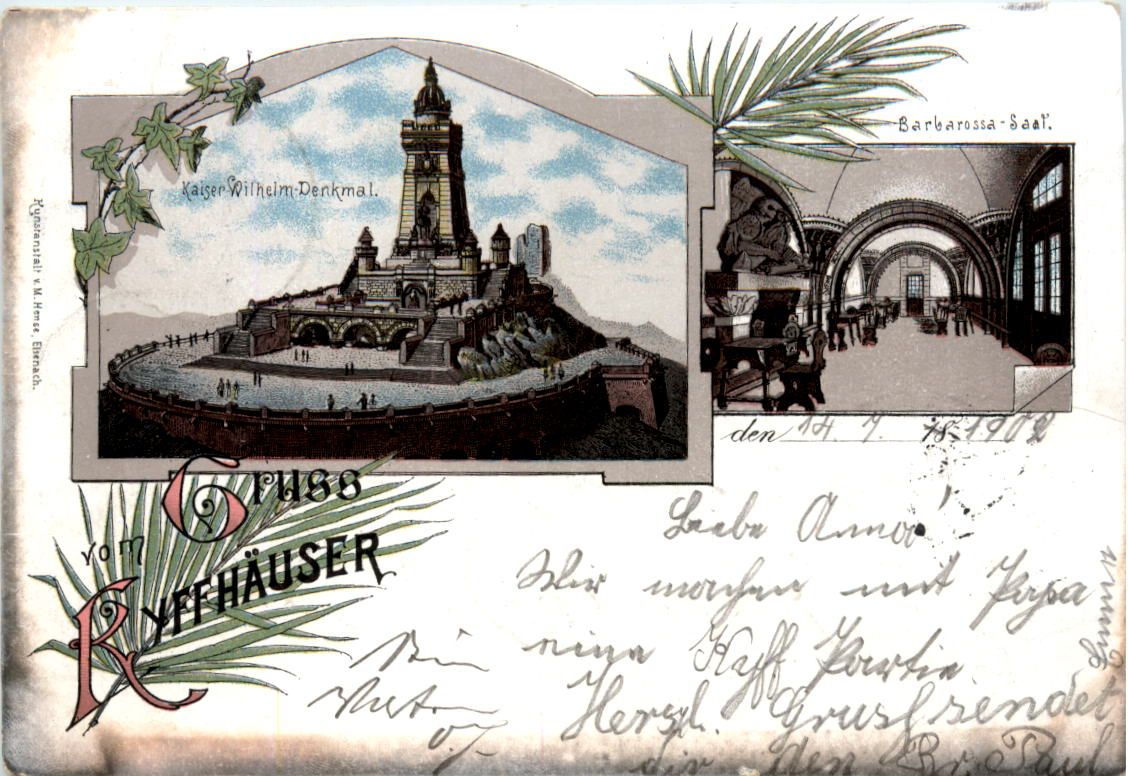 Kaiser Wilhelm-Denkmal.
Barbarossa-Saal.
Kunstanstalt v. M. Hense, Eisenach.
den 14. 7. 18 1902
Gruss
vom
KYFFHÄUSER
Liebe Anna!
Wir machen mit Papa
eine Kyff Partie.
Herzl. Gruß sendet
dir den Br. Paul
Dein
Vater